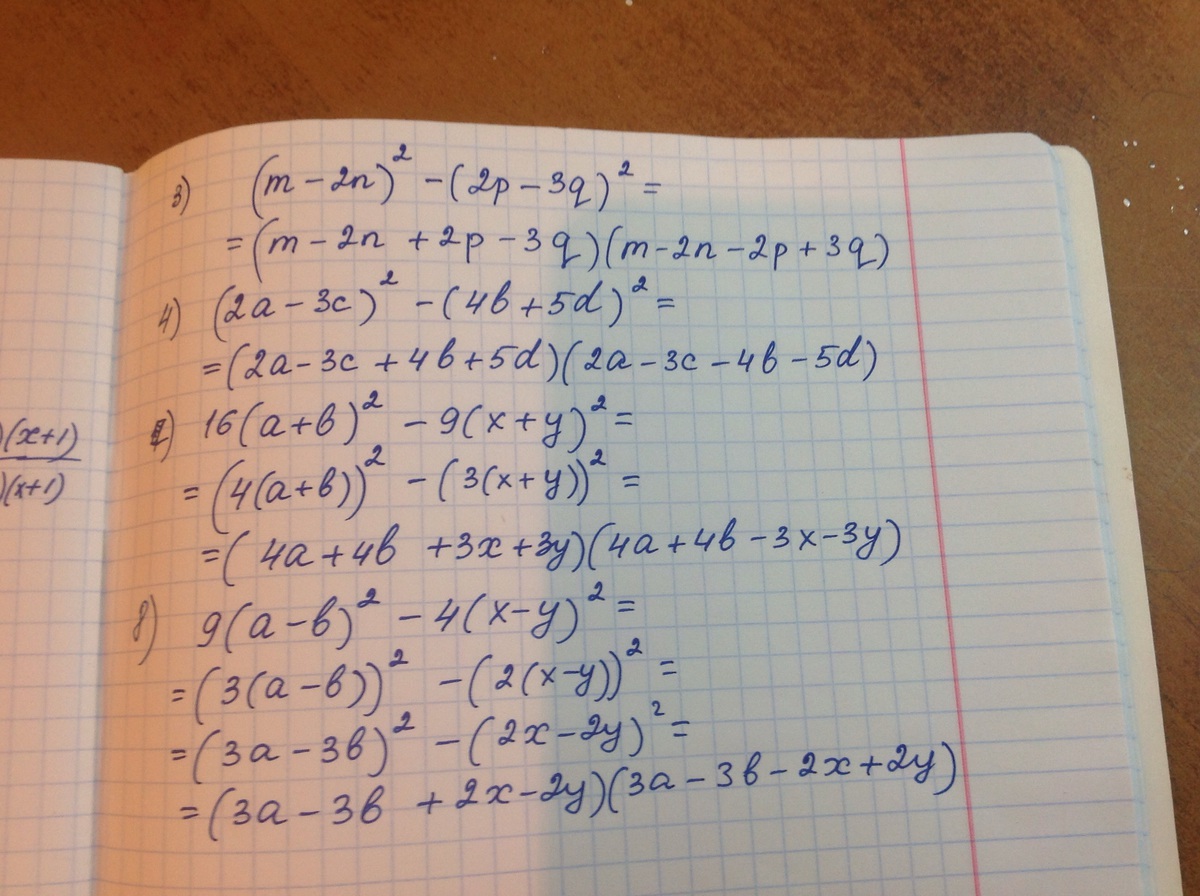 )(x+1)
)(x+1)
3) (m-2n)² -(2p-3q)² =
=(m-2n +2p-3q)(m-2n-2p+3q)
4) (2a-3c)² -(4b+5d)² =
=(2a-3c+4b+5d)(2a-3c-4b-5d)
16(a+b)² -9(x+y)² =
=(4(a+b))² -(3(x+y))² =
=(4a+4b +3x+3y)(4a+4b-3x-3y)
8) 9(a-b)² -4(x-y)² =
=(3(a-b))² -(2(x-y))² =
=(3a-3b)² -(2x-2y)² =
=(3a-3b +2x-2y)(3a-3b-2x+2y)